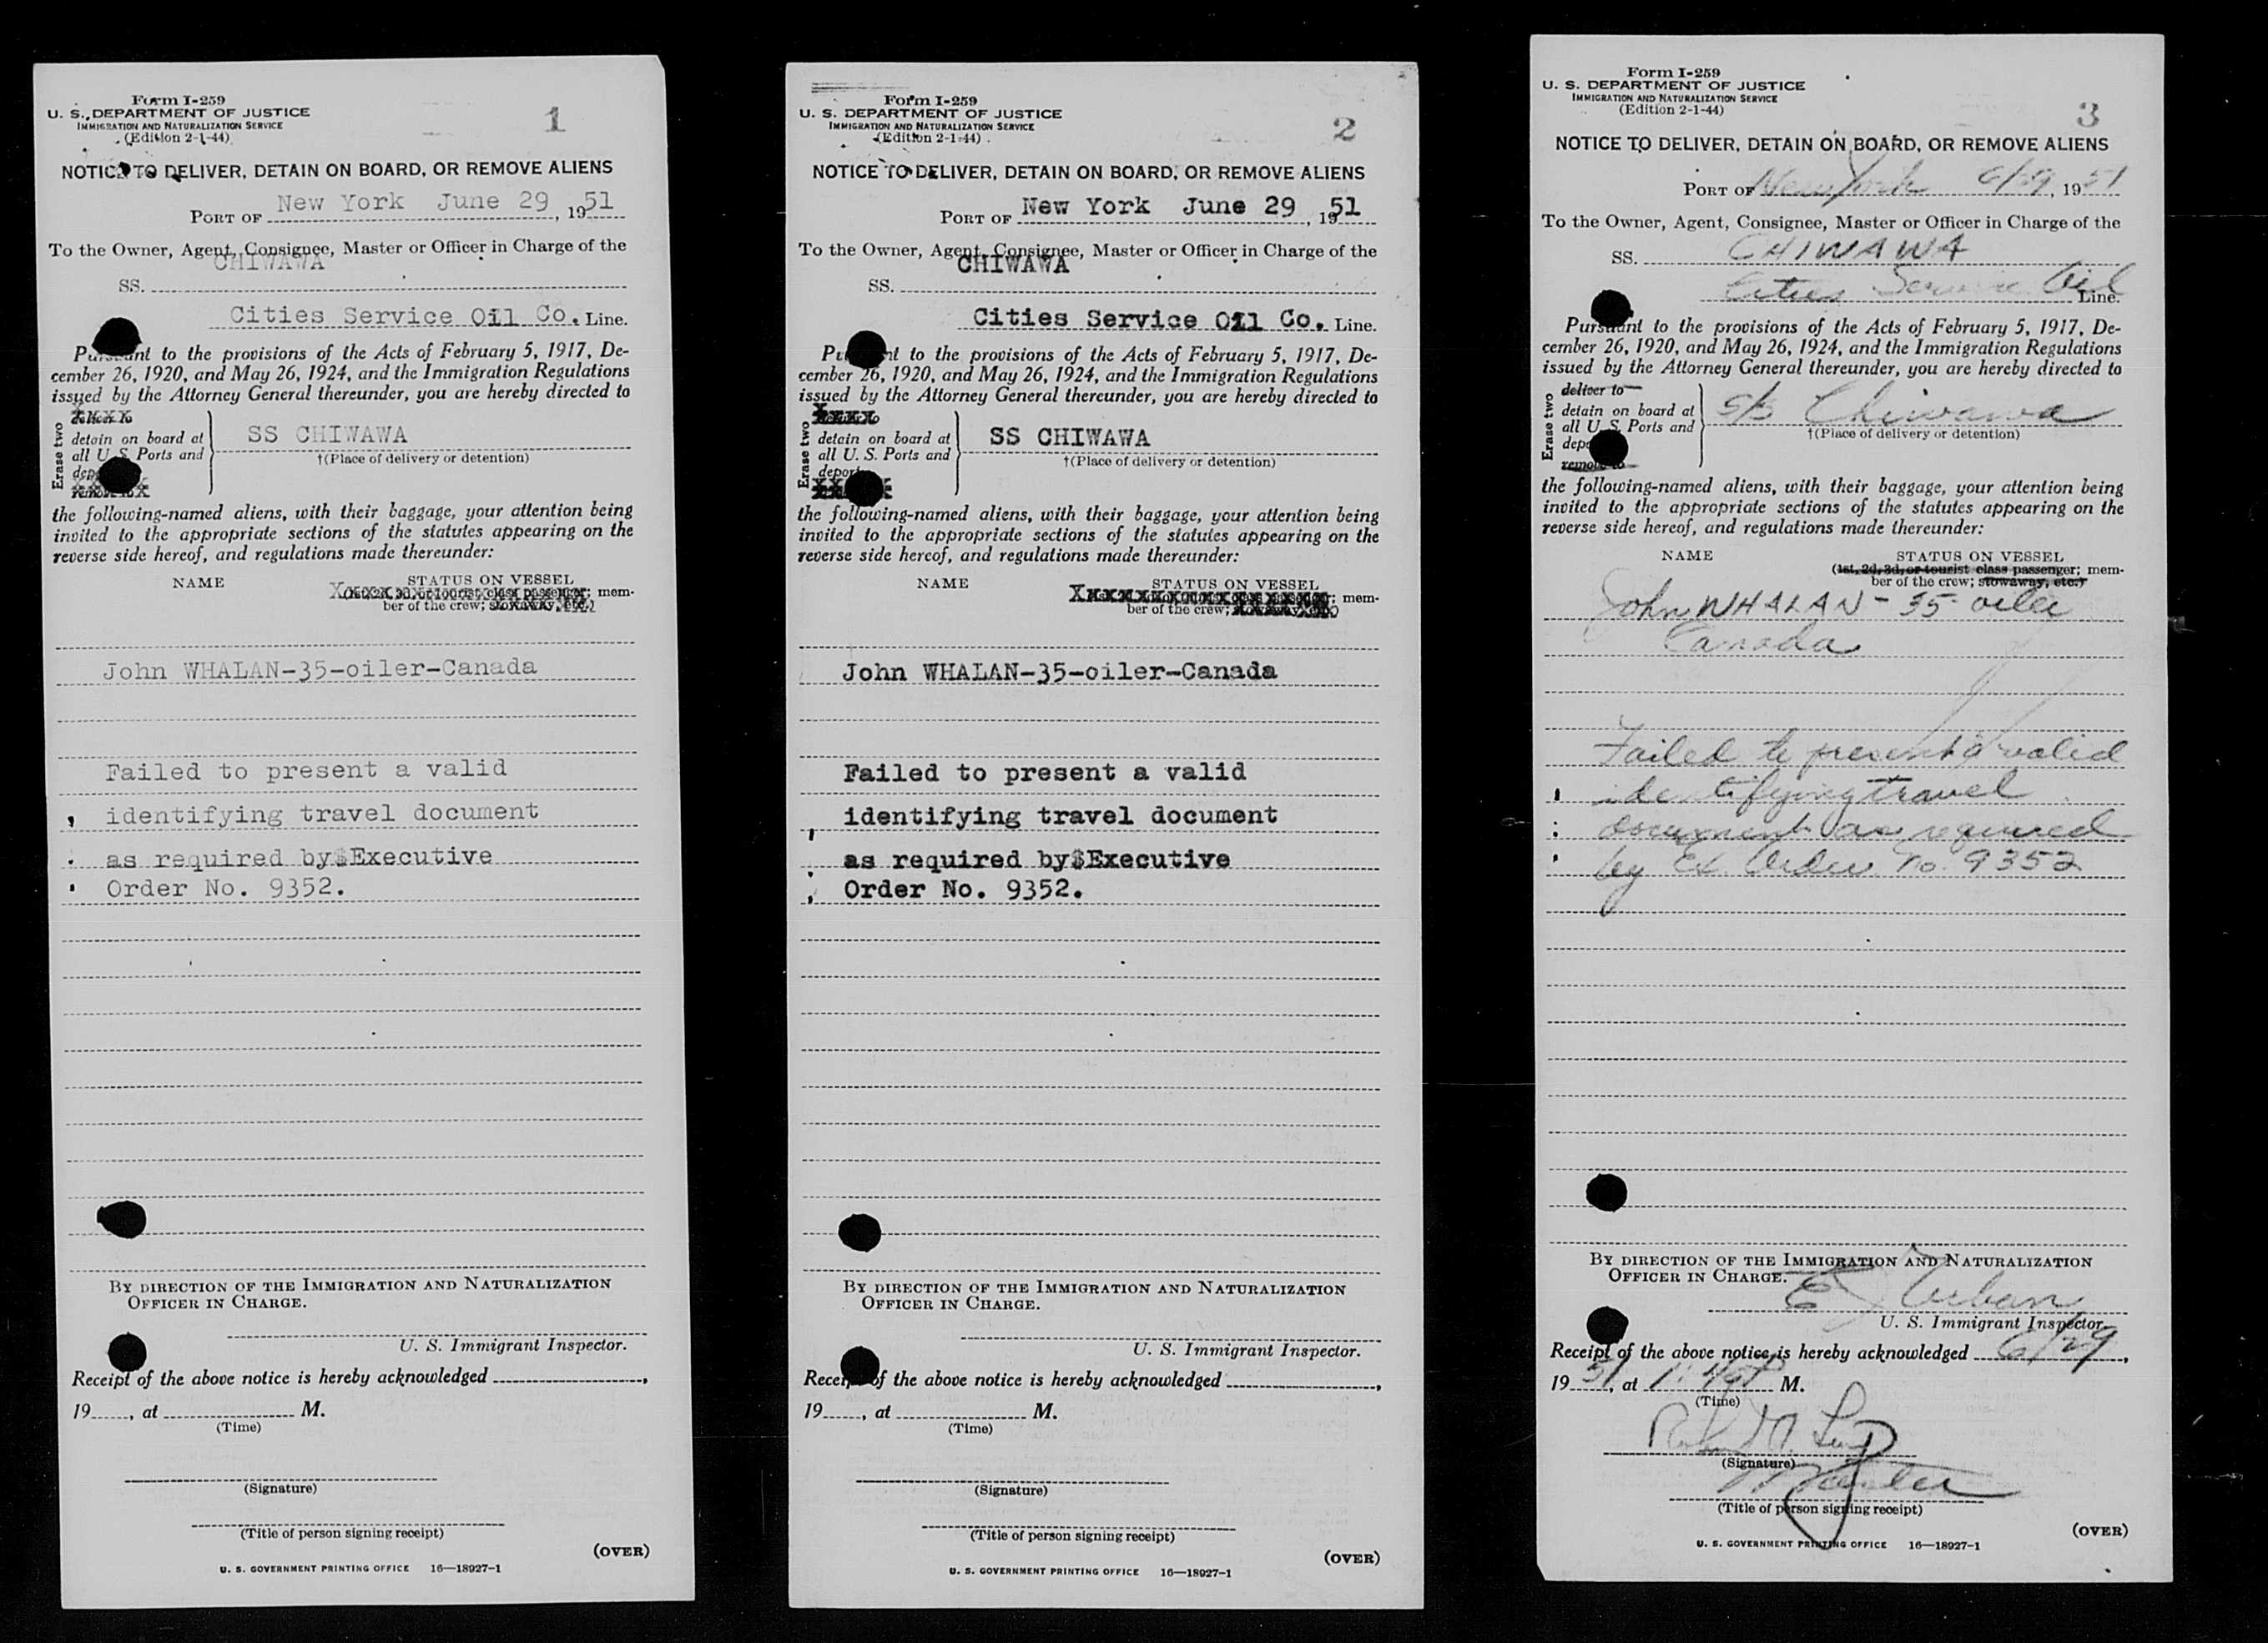 Form I-259
U. S. DEPARTMENT OF JUSTICE
IMMIGRATION AND NATURALIZATION SERVICE
(Edition 2-1-44)
1
NOTICE TO DELIVER, DETAIN ON BOARD, OR REMOVE ALIENS
PORT OF New York June 29, 1951
To the Owner, Agent, Consignee, Master or Officer in Charge of the
SS. CHIWAWA
Cities Service Oil Co. Line.
Pursuant to the provisions of the Acts of February 5, 1917, De-
cember 26, 1920, and May 26, 1924, and the Immigration Regulations
issued by the Attorney General thereunder, you are hereby directed to
Erase two
deliver to
detain on board at
all U. S. Ports and
dep
remove to
SS CHIWAWA
†(Place of delivery or detention)
the following-named aliens, with their baggage, your attention being
invited to the appropriate sections of the statutes appearing on the
reverse side hereof, and regulations made thereunder:
NAME STATUS ON VESSEL
(1st, 2d, 3d, or tourist class passenger; mem-
ber of the crew; stowaway, etc.)
John WHALAN-35-oiler-Canada
Failed to present a valid
identifying travel document
as required by$Executive
Order No. 9352.
BY DIRECTION OF THE IMMIGRATION AND NATURALIZATION
OFFICER IN CHARGE.
U. S. Immigrant Inspector.
Receipt of the above notice is hereby acknowledged ,
19 , at M.
(Time)
(Signature)
(Title of person signing receipt)
(OVER)
U. S. GOVERNMENT PRINTING OFFICE 16—18927-1
Form I-259
U. S. DEPARTMENT OF JUSTICE
IMMIGRATION AND NATURALIZATION SERVICE
(Edition 2-1-44)
2
NOTICE TO DELIVER, DETAIN ON BOARD, OR REMOVE ALIENS
PORT OF New York June 29, 1951
To the Owner, Agent, Consignee, Master or Officer in Charge of the
SS. CHIWAWA
Cities Service Oil Co. Line.
Pursuant to the provisions of the Acts of February 5, 1917, De-
cember 26, 1920, and May 26, 1924, and the Immigration Regulations
issued by the Attorney General thereunder, you are hereby directed to
Erase two
detain on board at
all U. S. Ports and
deport
SS CHIWAWA
†(Place of delivery or detention)
the following-named aliens, with their baggage, your attention being
invited to the appropriate sections of the statutes appearing on the
reverse side hereof, and regulations made thereunder:
NAME STATUS ON VESSEL
mem-
ber of the crew;
John WHALAN-35-oiler-Canada
Failed to present a valid
identifying travel document
as required by$Executive
Order No. 9352.
BY DIRECTION OF THE IMMIGRATION AND NATURALIZATION
OFFICER IN CHARGE.
U. S. Immigrant Inspector.
Receipt of the above notice is hereby acknowledged ,
19 , at M.
(Time)
(Signature)
(Title of person signing receipt)
(OVER)
U. S. GOVERNMENT PRINTING OFFICE 16—18927-1
Form I-259
U. S. DEPARTMENT OF JUSTICE
IMMIGRATION AND NATURALIZATION SERVICE
(Edition 2-1-44)
3
NOTICE TO DELIVER, DETAIN ON BOARD, OR REMOVE ALIENS
PORT OF New York 6/29, 1951
To the Owner, Agent, Consignee, Master or Officer in Charge of the
SS. CHIWAWA
Cities Service Oil Line.
Pursuant to the provisions of the Acts of February 5, 1917, De-
cember 26, 1920, and May 26, 1924, and the Immigration Regulations
issued by the Attorney General thereunder, you are hereby directed to
Erase two
deliver to
detain on board at
all U. S. Ports and
depo
remove to
S/S Chiwawa
†(Place of delivery or detention)
the following-named aliens, with their baggage, your attention being
invited to the appropriate sections of the statutes appearing on the
reverse side hereof, and regulations made thereunder:
NAME STATUS ON VESSEL
(1st, 2d, 3d, or tourist class passenger; mem-
ber of the crew; stowaway, etc.)
John WHALAN - 35 - oiler
Canada
Failed to present a valid
identifying travel
document as required
by Ex. Order No. 9352
BY DIRECTION OF THE IMMIGRATION AND NATURALIZATION
OFFICER IN CHARGE.
E J Urban
U. S. Immigrant Inspector.
Receipt of the above notice is hereby acknowledged 6/29,
1951, at M.
(Time)
(Signature)
Master
(Title of person signing receipt)
(OVER)
U. S. GOVERNMENT PRINTING OFFICE 16—18927-1